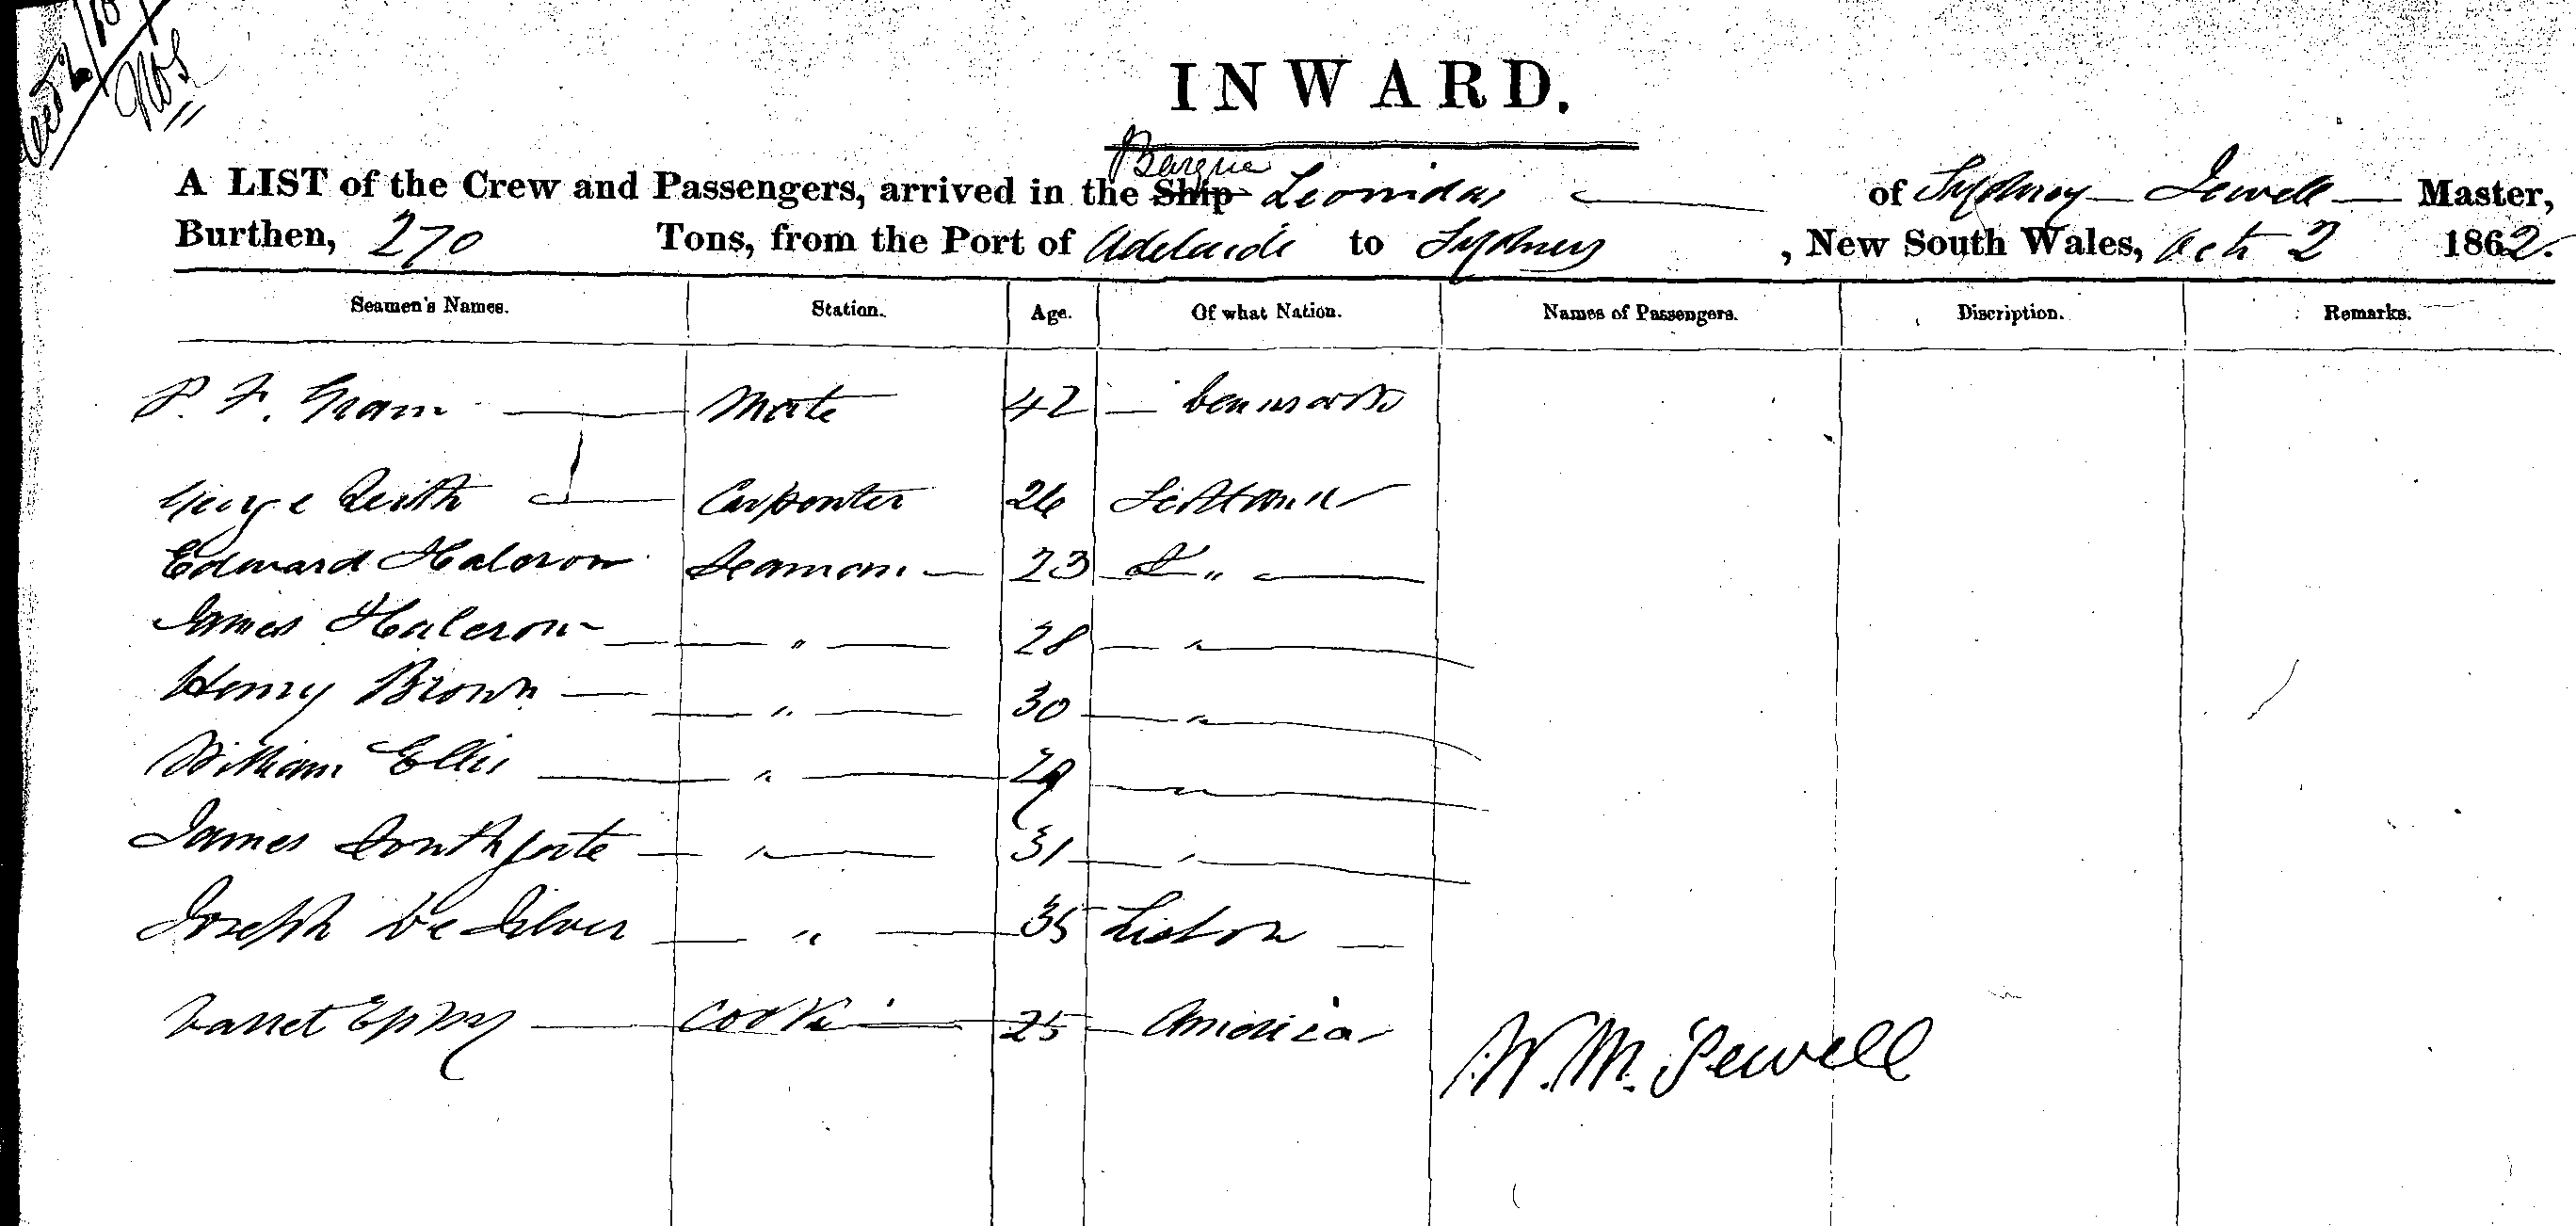 Oct 2/62
INWARD.
Barque
A LIST of the Crew and Passengers, arrived in the Ship Leonidas of Sydney Jewell Master,
Burthen, 270 Tons, from the Port of Adelaide to Sydney, New South Wales, Oct 2 1862.
Seamen's Names. Station. Age. Of what Nation. Names of Passengers. Discription. Remarks.
P. F. Gram Mate 42 Denmark
George Keith Carpenter 26 Scotland
Edward Halcrow Seaman 23 Do "
James Halcrow " 28 "
Henry Brown " 30 "
William Ellis " 29 "
James Southgate " 31 "
Joseph De Silver " 35 Lisbon
Cook 25 America
W. M. Jewell